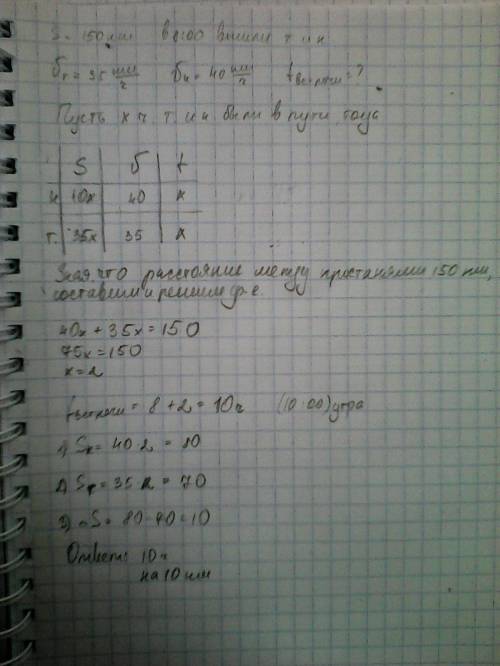 S = 150 км в 8:00 вышли т и к
vт = 35 км/ч vк = 40 км/ч tвстречи = ?
Пусть x ч т. и к были в пути, тогда
S v t
к 40x 40 x
т. 35x 35 x
Зная, что расстояние между пристанями 150 км,
составим и решим ур-е.
40x + 35x = 150
75x = 150
x = 2
tвстречи = 8 + 2 = 10ч (10:00) утра
1) Sк = 40·2 = 80
2) Sт = 35·2 = 70
3) S = 80-70 = 10
Ответ: 10ч
на 10 км